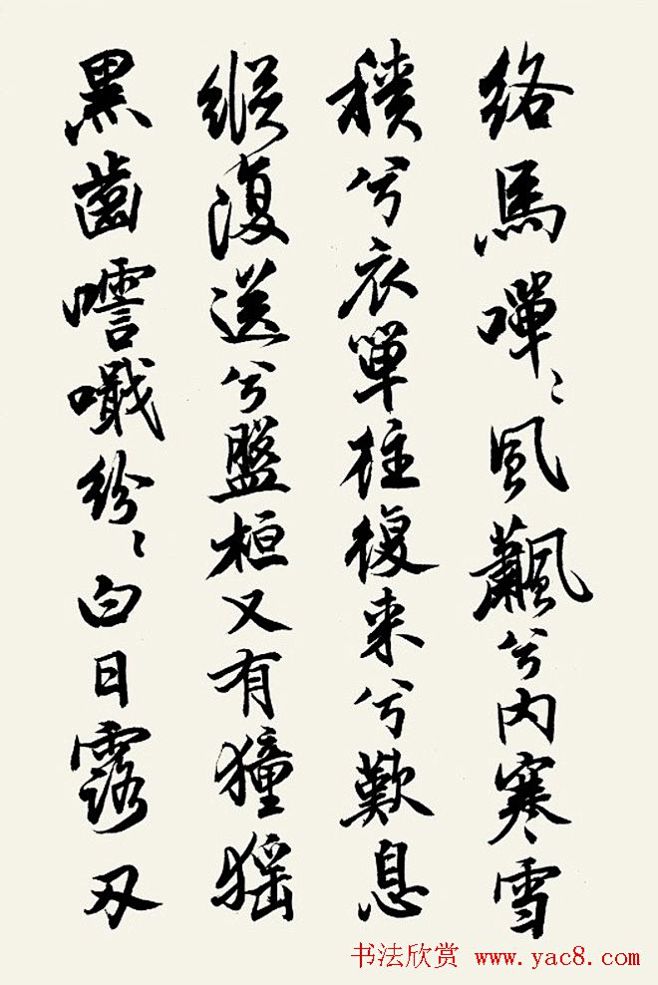 络馬嘽〻風飍兮内寒雪
積兮衣單往復来兮歎息
縱復送兮盤桓又有獞猺
黑齒嚯嚱紛〻白日露刃
书法欣赏 www.yac8.com